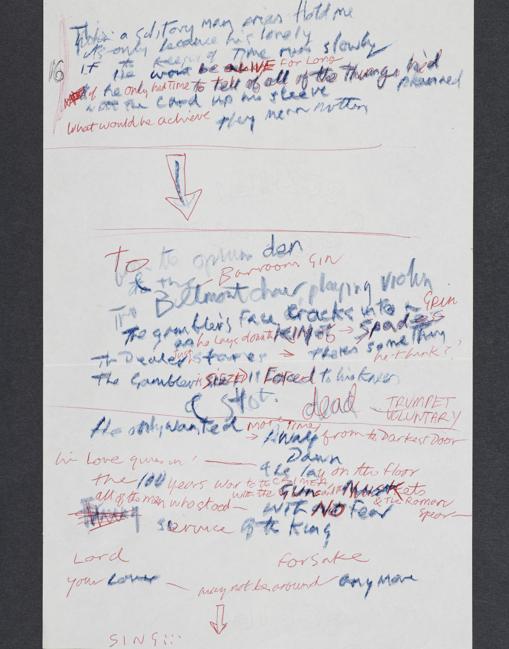 a solitary man cries Hold me
its only because his lonely
if the keeper of Time runs slowly
He wont be ALIVE For Long
if he only had time to tell of all of the things he'd planned
with the card up his sleeve
What would be achieve they mean nothing
To the opium den
Barroom GIN
Belmont chair, playing violin
The gambler's face cracks into a GRIN
he lays down KING of Spades
The Dealer stares There's something he thinks?
The Gambler is Forced to his knees
Shot. dead TRUMPET VOLUNTARY
He only wanted more time
Away from to Darkest Door
Dawn
he lay on the floor
the 100 years war to the CRIMEA
with the GUN and MUSKets & the Roman Spear
all of the men who stood with NO Fear
Service of the King
Lord Forsake
your Love may not be around any more
SING